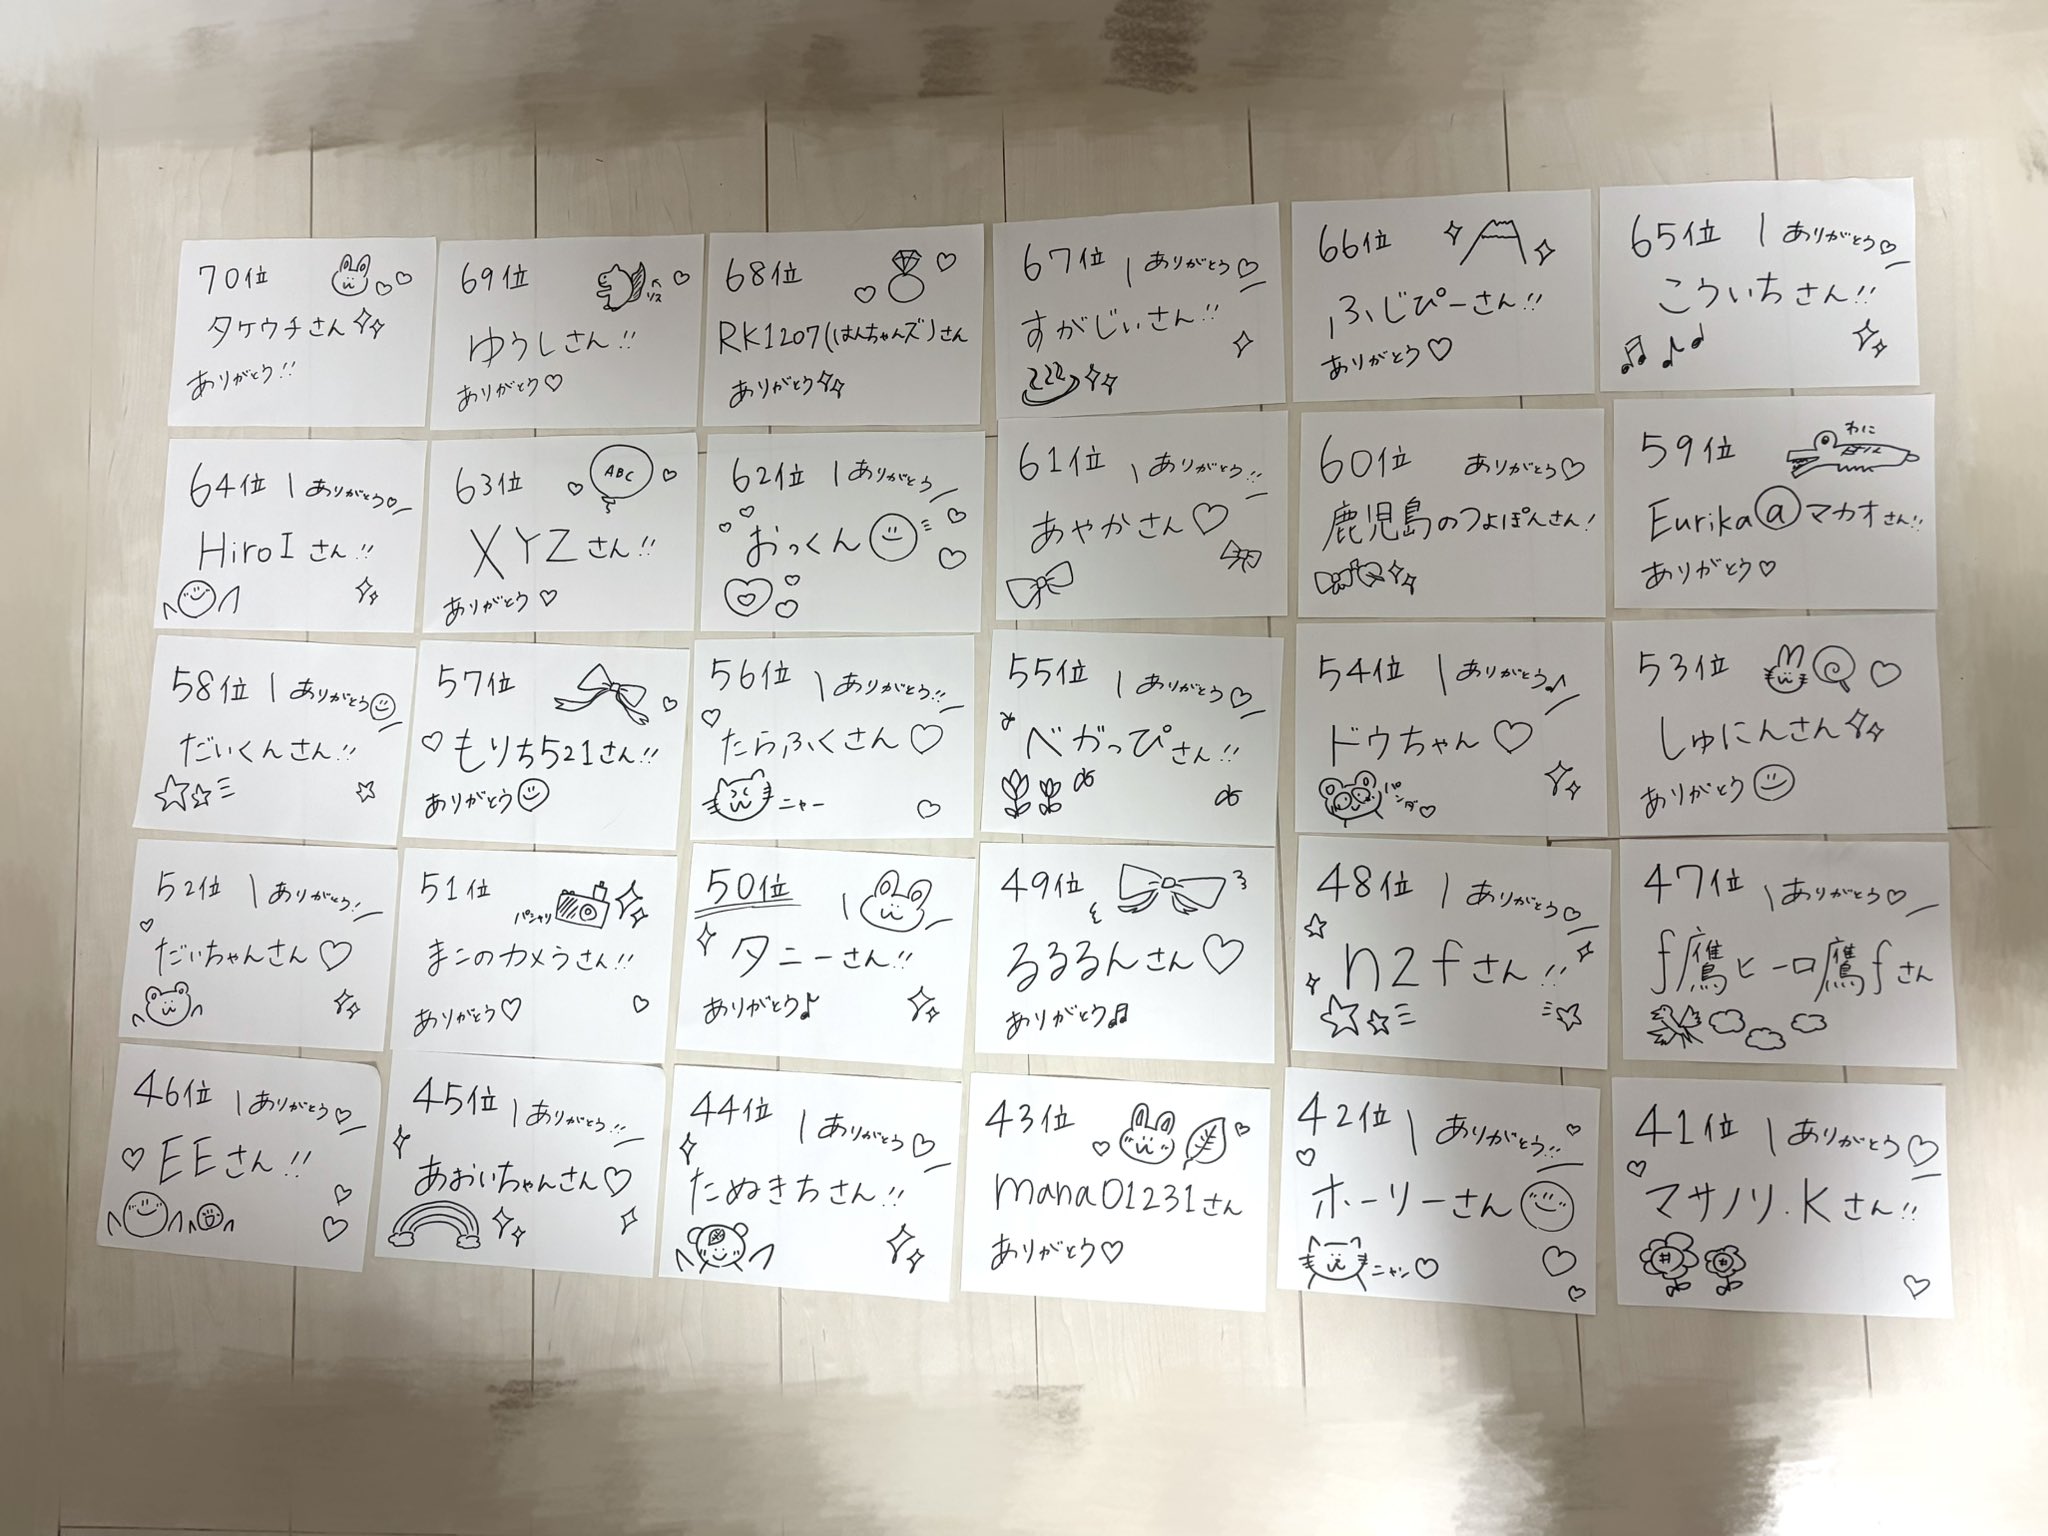 70位
タケウチさん
ありがとう!!
69位
リス
ゆうしさん!!
ありがとう♡
68位
RK1207(はんちゃんズ)さん
ありがとう
67位 ありがとう♡
すがじぃさん!!
66位
ふじぴーさん!!
ありがとう♡
65位 ありがとう♡
こういちさん!!
64位 ありがとう♡
HiroIさん!!
63位
ABC
XYZさん!!
ありがとう♡
62位 ありがとう
おっくん
61位 ありがとう!!
あやかさん♡
60位 ありがとう♡
鹿児島のつよぽんさん!
59位
わに
Eurika@マカオさん!!
ありがとう♡
58位 ありがとう
だいくんさん!!
57位
もりち521さん!!
ありがとう
56位 ありがとう!!
たらふくさん♡
ニャー
55位 ありがとう♡
べがっぴさん!!
54位 ありがとう♪
ドウちゃん♡
パンダ♡
53位
しゅにんさん
ありがとう
52位 ありがとう!
だいちゃんさん♡
51位
パシャリ
まこのカメラさん!!
ありがとう♡
50位
タニーさん!!
ありがとう♪
49位
るるるんさん♡
ありがとう♫
48位 ありがとう♡
n2fさん!!
47位 ありがとう♡
f鷹ヒーロ鷹fさん
46位 ありがとう♡
EEさん!!
45位 ありがとう!!
あおいちゃんさん♡
44位 ありがとう♡
たぬきちさん!!
43位
mana01231さん
ありがとう♡
42位 ありがとう!!
ホーリーさん
ニャン♡
41位 ありがとう♡
マサノリ.Kさん!!